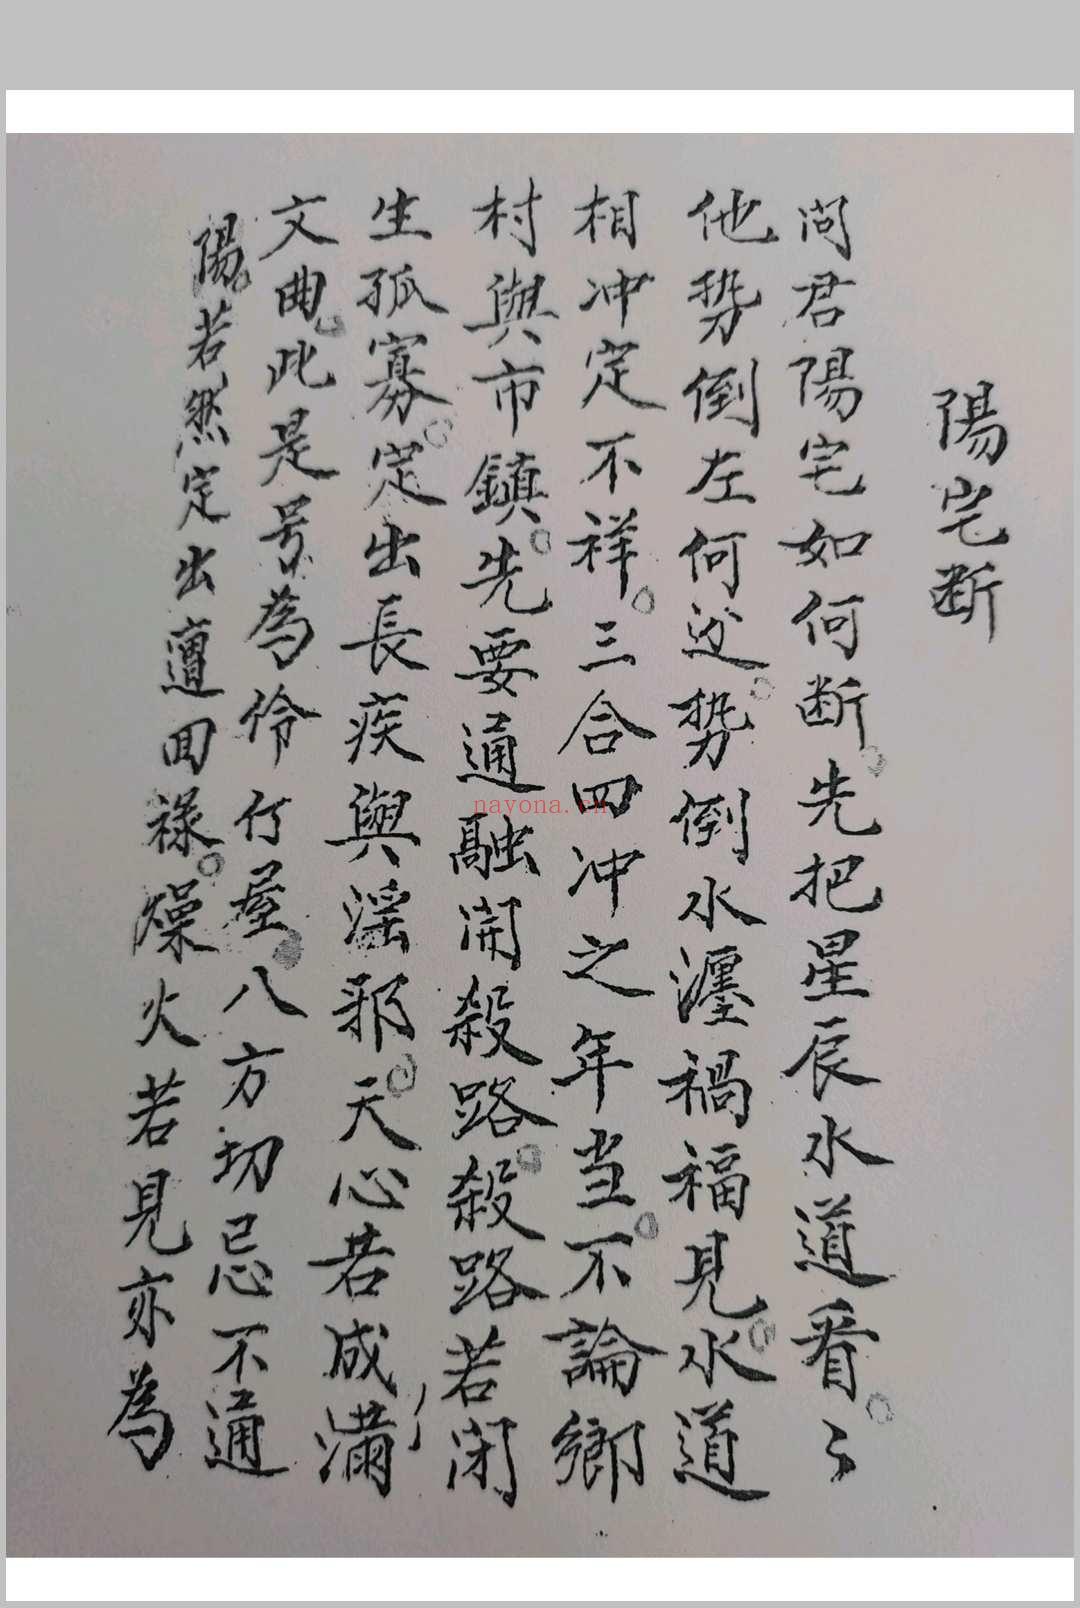 陽宅断
问君陽宅如何断。先把星辰水道看。〻
他势倒左何边。势倒水瀍禍福見。水道
相冲定不祥。三合四冲之年当。不論鄉
村與市鎮。先要通融開殺路。殺路若闭
生孤寡。定出長疾與淫邪。天心若成满
文曲。此是号為伶仃屋。八方切忌不通
陽。若然定出遭回禄。燥火若見亦為
nayona.cn